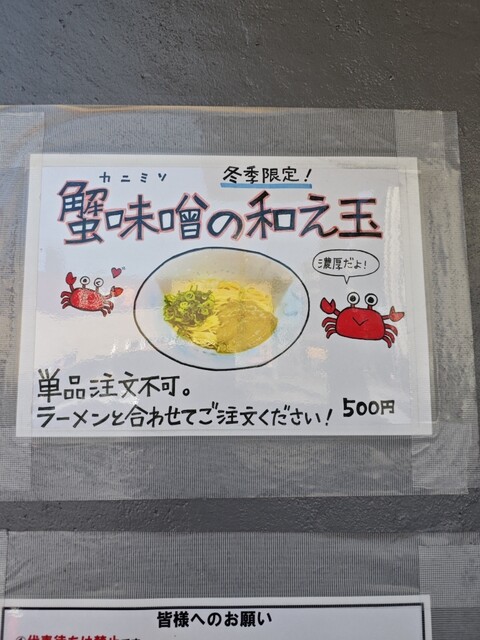 カニミソ
冬季限定!
蟹味噌の和え玉
濃厚だよ!
単品注文不可。
ラーメンと合わせてご注文ください! 500円
皆様へのお願い